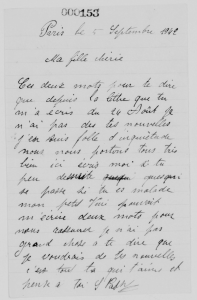 000153
Paris le 5 Septembre 1942
Ma fille chérie
Ces deux mots pour te dire
que depuis la lettre que tu
m'a écris du 24 Août je
n'ai pas des tes nouvelles
j'en suis folle d'inquiétude
nous nous portons tous très
bien ici mois a
peu
se passe si tu es malade
mon petit pourrait
m'écrire deux mots pour
nous je n'ai pas
grand chose à te dire que
je voudrais de tes nouvelles
c'est tout ta qui t'aime et
pense a toi